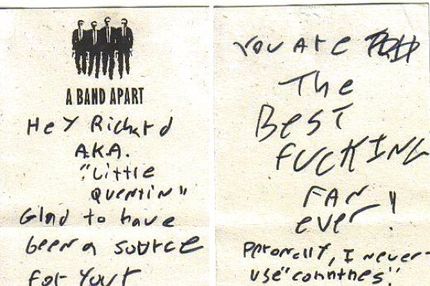 A BAND APART
Hey Richard
A.K.A.
"Little
Quentin"
Glad to have
been a source
for your
You are
The
BEST
FUCKING
FAN
ever!
Peronally, I never
use "comnthes".